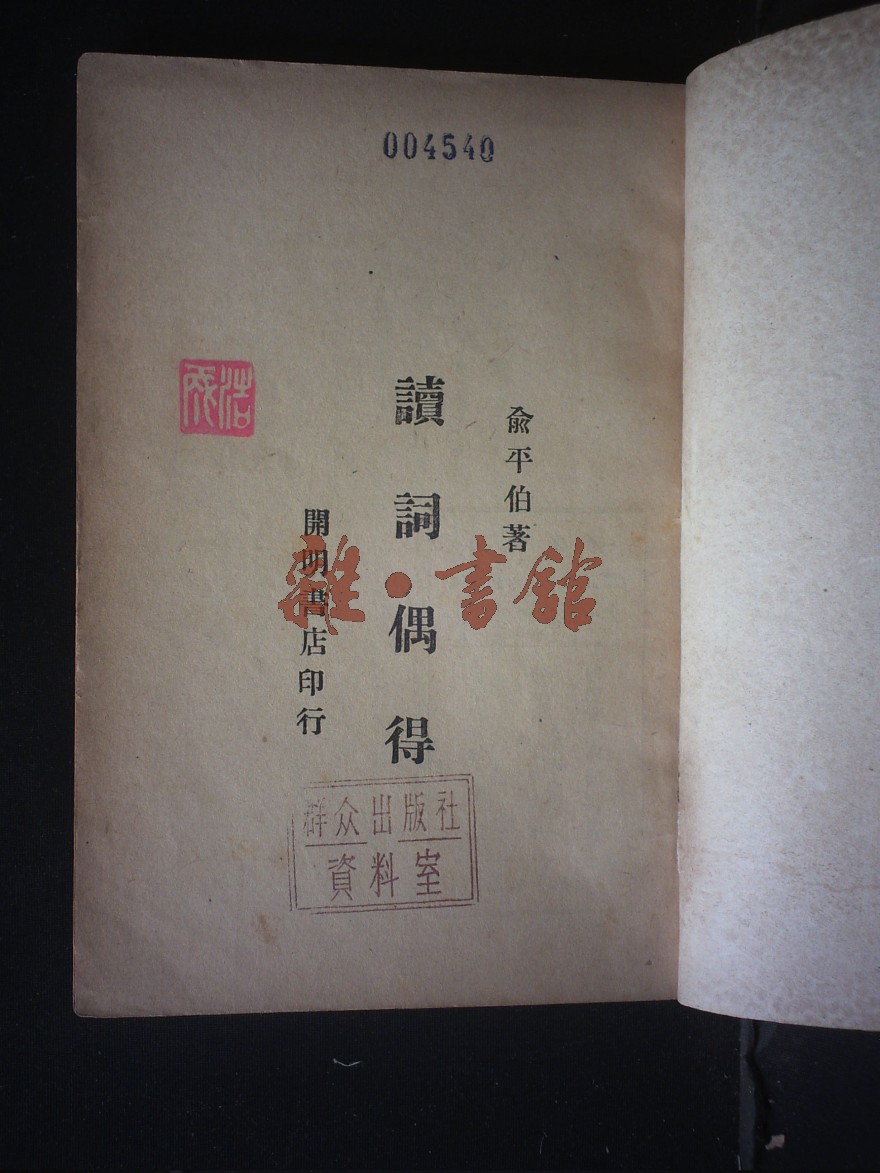 004540
俞平伯著
讀詞偶得
開明書店印行
浩成
雜·書館
群众出版社
資料室